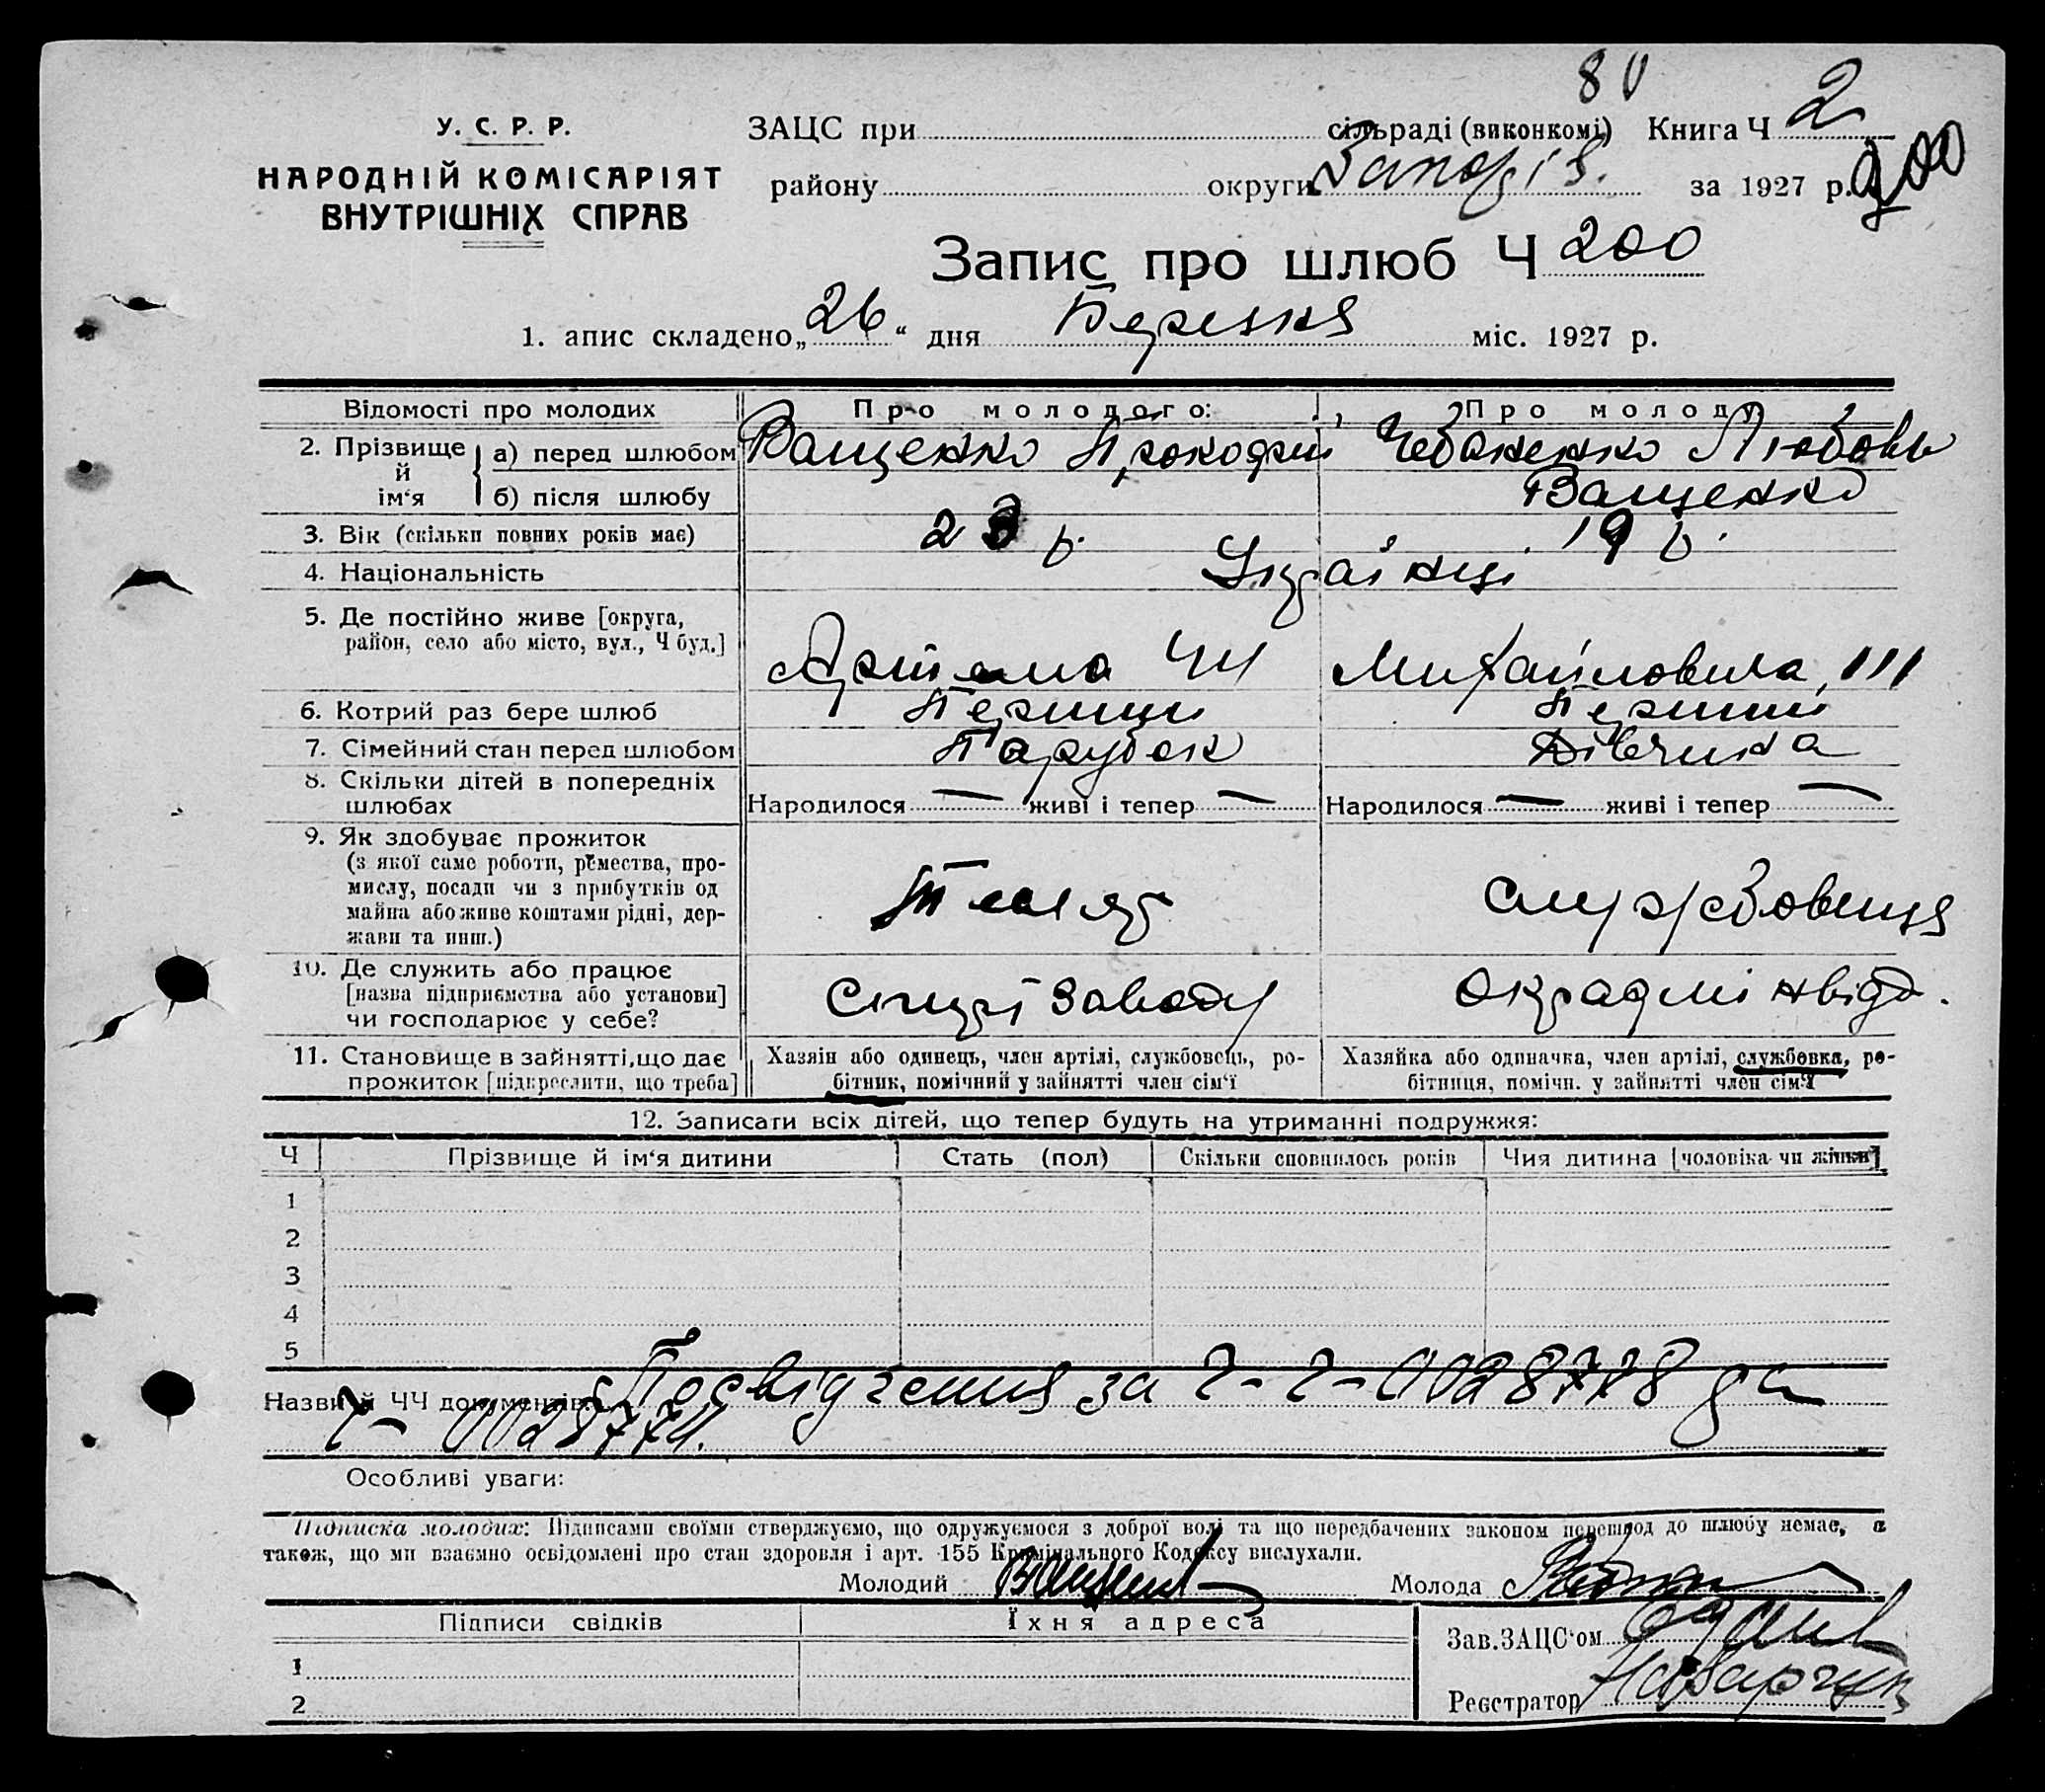 80
У. С. Р. Р.
НАРОДНІЙ КОМІСАРІЯТ
ВНУТРІШНІХ СПРАВ
ЗАЦС при сільраді (виконкомі) Книга Ч 2
району округи Запоріз. за 1927 р. 200
Запис про шлюб Ч 200
1. апис складено „26“ дня Березня міс. 1927 р.
Відомості про молодих Про молодого: Про молоду:
2. Прізвище й ім‘я
а) перед шлюбом Ващенко Прокофій Чебаненко Любовь
б) після шлюбу Ващенко
3. Вік (скільки повних років має) 23 р. 19 р.
4. Національність Українці
5. Де постійно живе [округа,
район, село або місто, вул., Ч буд.]
Артема Михайловича, 111
6. Котрий раз бере шлюб Перший Перший
7. Сімейний стан перед шлюбом Парубок Дівчина
8. Скільки дітей в попередніх
шлюбах
Народилося — живі і тепер — Народилося — живі і тепер —
9. Як здобуває прожиток
(з якої саме роботи, ремества, про-
мислу, посади чи з прибутків од
майна або живе коштами рідні, дер-
жави та инш.)
Тесляр службовиця
10. Де служить або працює
[назва підприємства або установи]
чи господарює у себе?
заводу Окрадмінвідд.
11. Становище в зайнятті, що дає
прожиток [підкреслити, що треба]
Хазяін або одинець, член артілі, службовець, ро-
бітник, помічний у зайнятті член сім‘ї
Хазяйка або одиначка, член артілі, службовка, ро-
бітниця, помічн. у зайнятті член сім‘ї
12. Записати всіх дітей, що тепер будуть на утриманні подружжя:
Ч Прізвище й ім‘я дитини Стать (пол) Скільки сповнилось років Чия дитина [чоловіка чи жінки]
1
2
3
4
5
Назви й ЧЧ документів: Посвідчення за
Особливі уваги:
Підписка молодих: Підписами своїми стверджуємо, що одружуємося з доброї волі та що передбачених законом перешкод до шлюбу немає, а
також, що ми взаємно освідомлені про стан здоровля і арт. 155 Кримінального Кодексу вислухали.
Молодий Молода
Підписи свідків Їхня адреса
Зав. ЗАЦС‘ом
1
Реєстратор
2